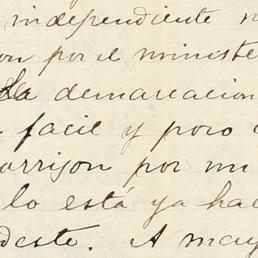 independiente n
on por el ministe
La demarcacion
facil y poco
orrijon por mi
lo está ya hac
deste. A may